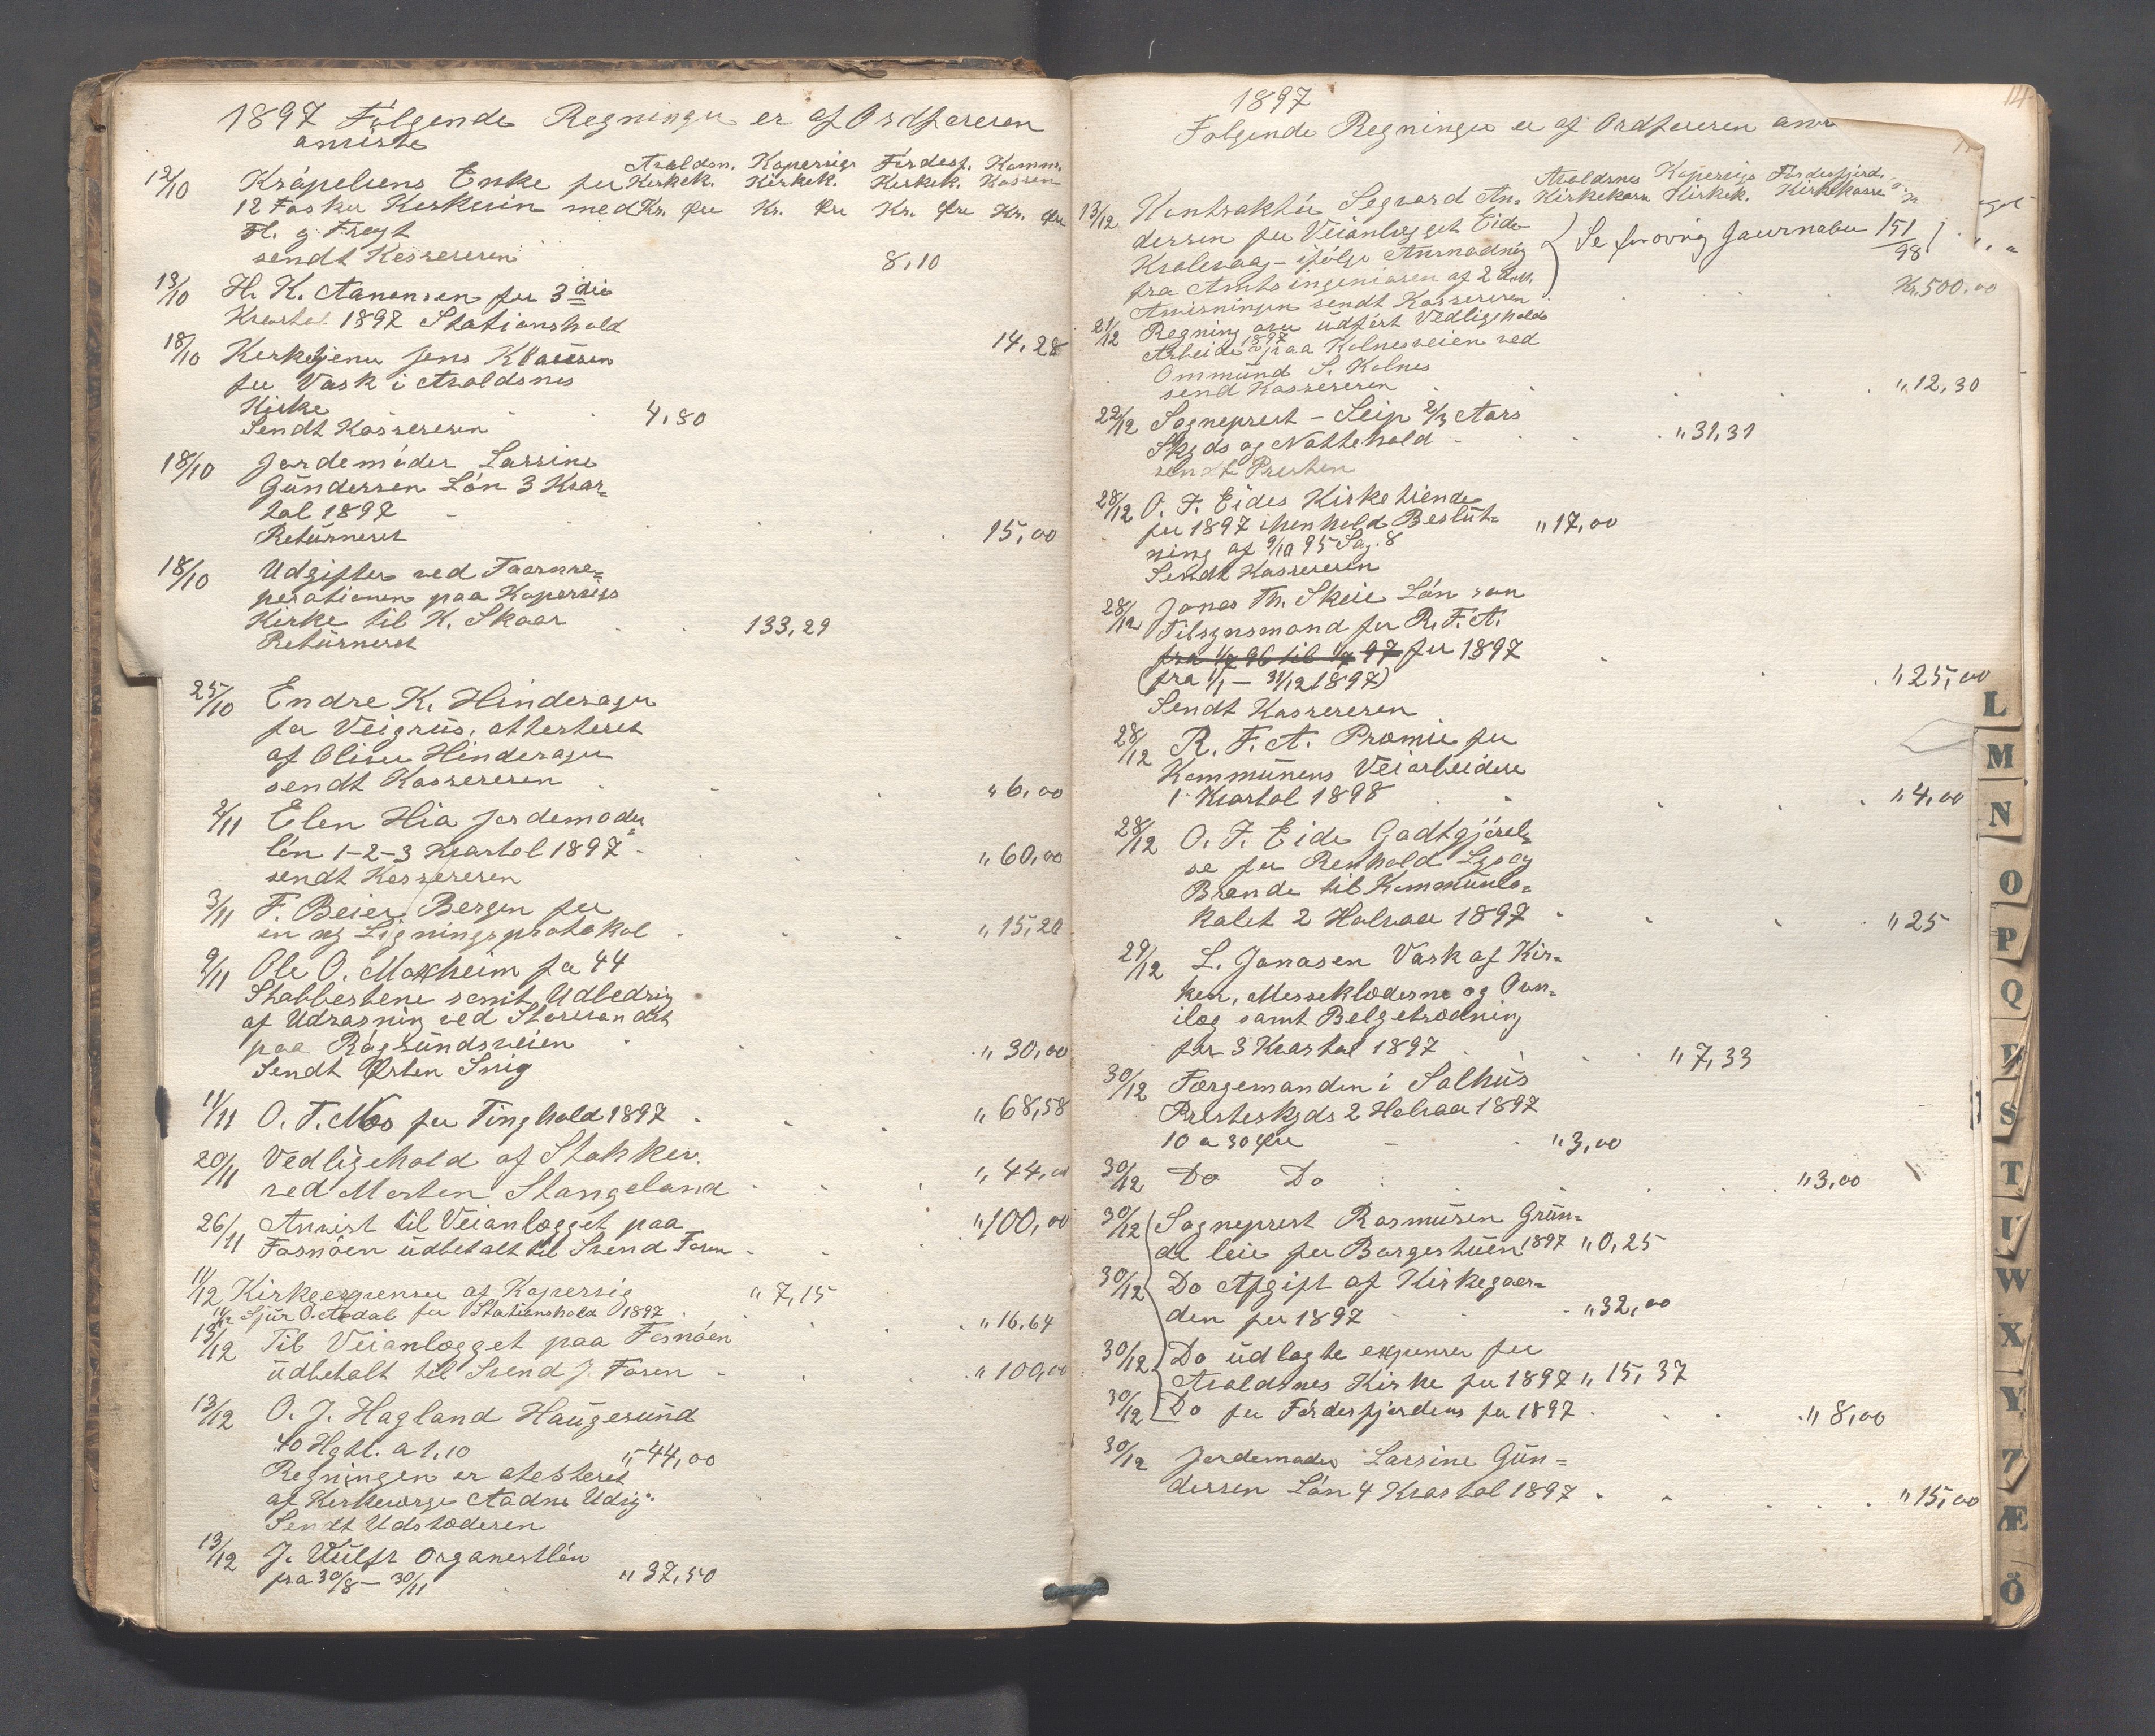 1897 Følgende Regninger er af Ordføreren
anviste
Avaldsn. Kopervigs Førdesf. Komm.
Kirkek. Kirkek. Kirkek. Kassen
Kr. Øre Kr. Øre Kr. Øre Kr. Øre
12/10 Kråpeliens Enke for
12 Fasker Kirkevin med
Fl. og Fragt
sendt Kassereren 8,10
13/10 H. K. Aanensen for 3die
Kvartal 1897 Stationshold
14,28
18/10 Kirketjener Jens Klausen
for Vask i Avaldsnes
Kirke
Sendt Kassereren 4,80
18/10 Jordemoder Lassine
Gundersen Løn 3 Kvar-
tal 1897
Returneret 15,00
18/10 Udgifter ved Taarnre-
perationen paa Kopervigs
Kirke til K. Skaar 133,29
Returneret
25/10 Endre K. Hinderager
for Veigrus, attesteret
af Oliver Hinderager
sendt Kassereren " 6,00
2/11 Elen Hia Jordemoder
løn 1-2-3 Kvartal 1897 " 60,00
sendt Kassereren
3/11 F. Beier Bergen for
en ny Ligningsprotokol " 15,20
9/11 Ole O. Moxheim for 44
Stabbestene samt Udbedring
af Udrasning ved Storesandet
paa Røgsundsveien " 30,00
Sendt Østen Snig
11/11 O. T. Moe for Tinghold 1897 " 68,58
20/11 Vedligehold af Stakker
ved Morten Stangeland " 44,00
26/11 Anvist til Veianlægget paa " 100,00
Fosnøen udbetalt til Svend Fosen
11/12 Kirkeexpenser af Kopervig " 7,15
11/12 Sjur O. Aadal for Stationshold 1897 " 16,64
13/12 Til Veianlægget paa Fosnøen
udbetalt til Svend J. Fosen " 100,00
13/12 O. J. Hagland Haugesund
40 Hgtl. a 1,10 " 44,00
Regningen er atesteret
af Kirkeværge Aadne Udvig
Sendt Udstæderen
13/12 J. Wulff Organistløn
fra 30/8 – 30/11 " 37,50
1897
Følgende Regninger er af Ordføreren anv
Avaldsnes Kopervigs Førdesfjord.
Kirkekasse Kirkek. Kirkekasse
13/12 Kontraktør Segvard An-
dersen for Veianlægget Eide
Kvalevaag – ifølge Anmodning Se forøvrig Jaurnalen 151/98
fra Amtsingeniøren af 2 dss.
Anvisningen sendt Kassereren Kr. 500,00
21/12 Regning over udført Vedligeholds
Arbeide 1897 paa Kolnesveien ved
Ommund S. Kolnes
send Kassereren " 12,30
22/12 Sogneprest – Seip 2/3 Aars
Skyds og Nattehold " 31,31
sendt Presten
28/12 O. F. Eides Kirketiende
for 1897 ihenhold Beslut- " 17,00
ning af 9/10 95 Sag. 8
Sendt Kassereren
28/12 Jonas Th. Skeie Løn som
Tilsynsmand for R. F. A.
fra 1/7 96 til 1/7 97 for 1897
(fra 1/1 – 31/12 1897) " 25,00
Sendt Kassereren
28/12 R. F. A. Præmie for
Kommunens Veiarbeidere
1. Kvartal 1898 " 4,00
28/12 O. F. Eide Godtgjørel-
se for Renhold Lys og
Brænde til Kommunelo-
kalet 2 Halvaar 1897 " 25
29/12 L. Jonasen Vask af Kir-
ken, Messeklæderne og Ovn-
ilæg samt Belgetrædning
for 3 Kvartal 1897 " 7,33
30/12 Færgemanden i Salhus
Presteskyds 2 Halvaar 1897
10 a 30 Øre " 3,00
30/12 Do Do " 3,00
30/12 Sogneprest Rasmussen Grun-
de leie for Borgestuen 1897 " 0,25
30/12 Do Afgift af Kirkegaar-
den for 1897 " 32,00
30/12 Do udlagte expenser for
Avaldsnes Kirke for 1897 " 15,37
30/12 Do for Førdesfjordens for 1897 " 8,00
30/12 Jordemoder Lassine Gun-
dersen Løn 4 Kvartal 1897 " 15,00
L
M
N
O
P
Q
S
T
U
W
X
Y
Z
Æ
Ö